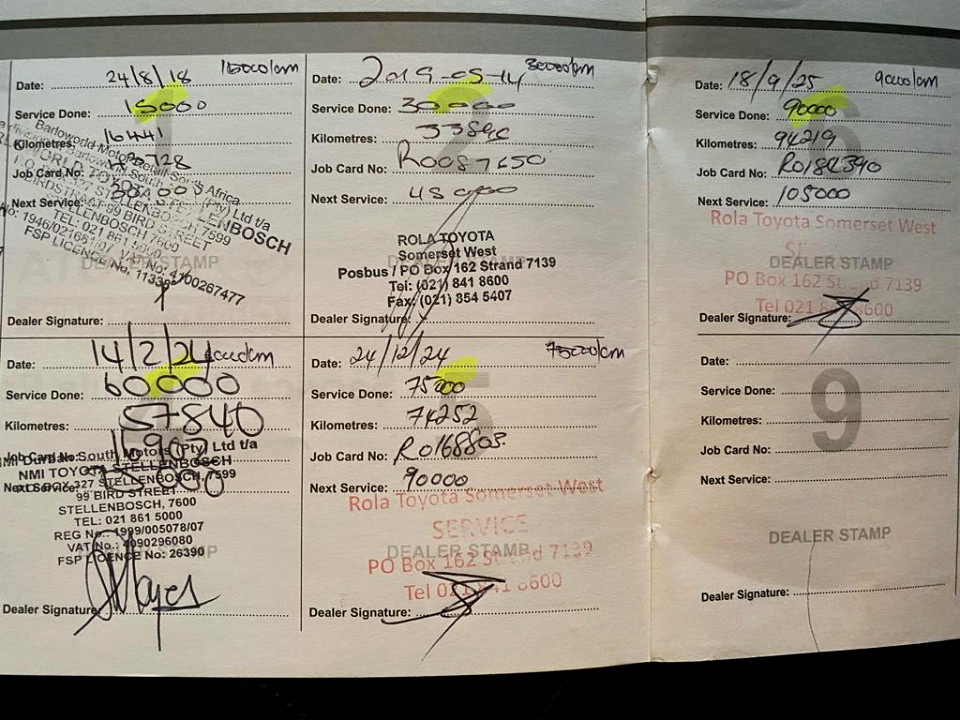 Date: 24/8/18 15000km
Service Done: 15000
Kilometres: 16441
Job Card No:
Next Service:
Barloworld Motor Retail South Africa
(Pty) Ltd t/a
STELLENBOSCH
99 BIRD STREET
STELLENBOSCH 7600
TEL: 021 861 5000
FSP LICENCE No. 11338
DEALER STAMP
Dealer Signature:
Date: 2019-05-14 30000km
2
Service Done: 30000
Kilometres:
Job Card No: R0087650
Next Service: 45000
ROLA TOYOTA
Somerset West
Posbus / PO Box 162 Strand 7139
Tel: (021) 841 8600
Fax: (021) 854 5407
DEALER STAMP
Dealer Signature:
Date: 18/9/25 90000km
6
Service Done: 90000
Kilometres: 94219
Job Card No:
Next Service: 105000
Rola Toyota Somerset West
DEALER STAMP
PO Box 162 Strand 7139
Tel 021 8600
Dealer Signature:
Date: 14/2/24
Service Done: 60000
Kilometres: 57840
Job Card No:
South Motors (Pty) Ltd t/a
NMI TOYOTA STELLENBOSCH
Next Service:
99 BIRD STREET
STELLENBOSCH, 7600
TEL: 021 861 5000
REG No.: 1999/005078/07
VAT No.: 4090296080
FSP LICENCE No: 26390
Dealer Signature:
Date: 24/12/24 75000km
Service Done: 75000
Kilometres: 74252
Job Card No: R0168803
Next Service: 90000
Rola Toyota Somerset West
SERVICE
DEALER STAMP
PO Box 162 Strand 7139
Tel 021 841 8600
Dealer Signature:
Date:
9
Service Done:
Kilometres:
Job Card No:
Next Service:
DEALER STAMP
Dealer Signature: